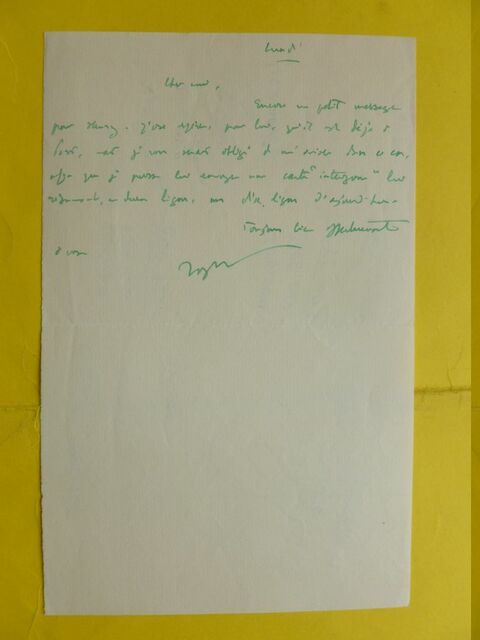 Lundi
Cher ami,
Encore un petit message
pour J'ose espérer, pour lui, qu'il est déjà à
mais je vous serais obligé de m'aviser dans ce cas,
afin que je puisse lui envoyer une carte "interzone" lui
résumant, en deux lignes, mes dix lignes d'aujourd'hui.
Toujours bien affectueusement
à vous